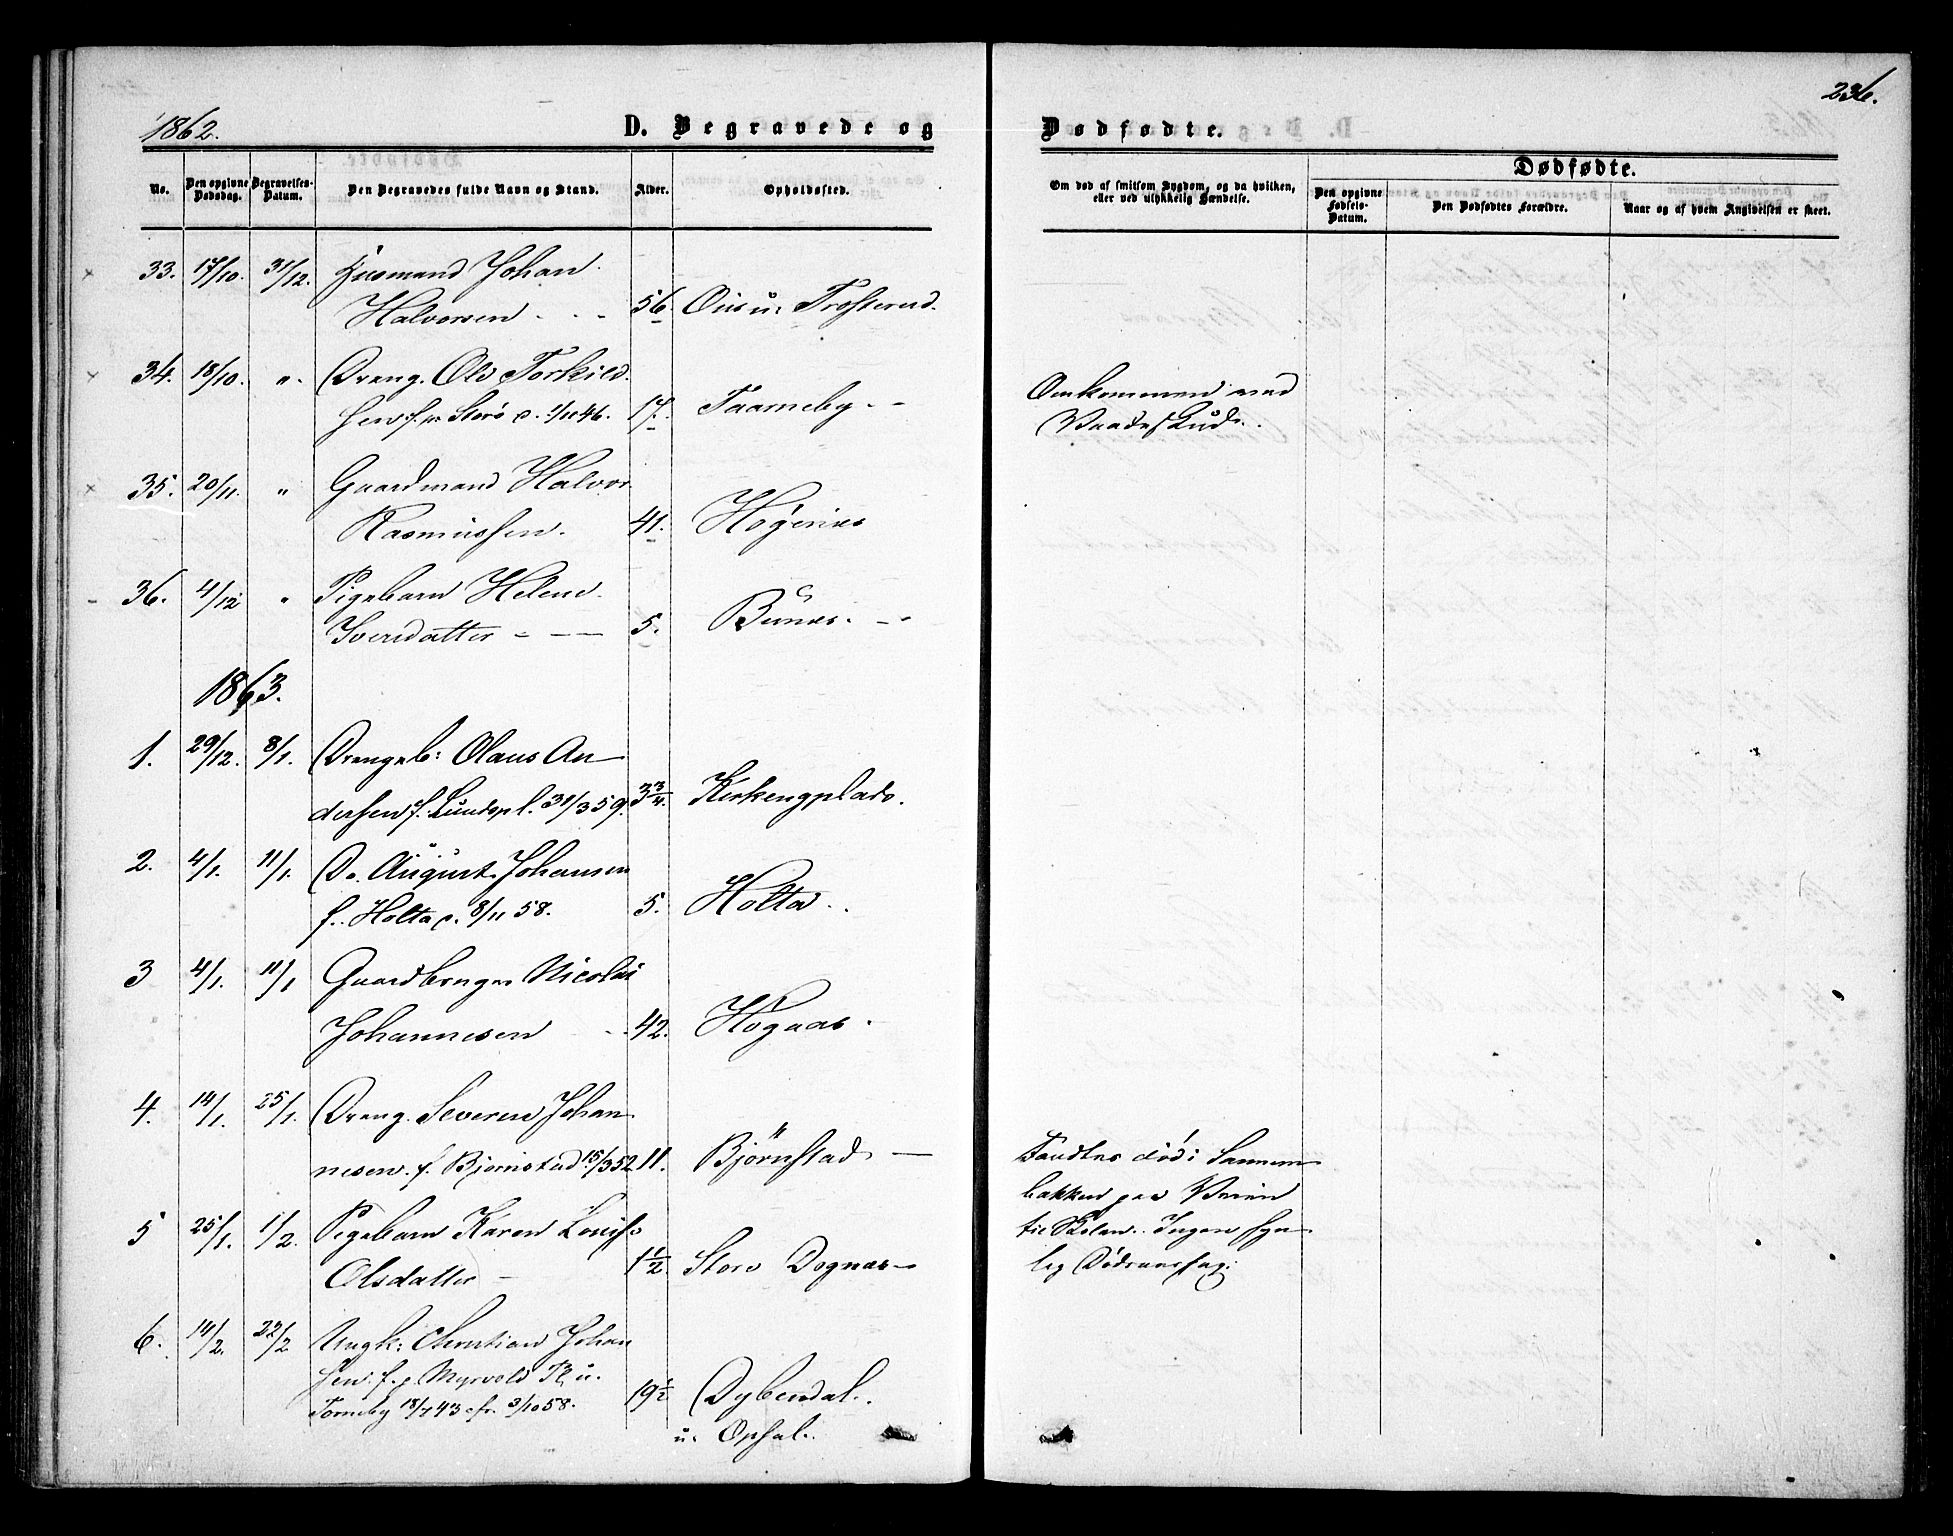 236.
1862. D. Begravede og Dødfødte.
Dødfødte.
No. Den opgivne Dødsdag. Begravelses-Datum. Den Begravedes fulde Navn og Stand. Alder. Opholdssted. Om død af smitsom Sygdom, og da hvilken, eller ved ulykkelig Hændelse. Den opgivne Fødsels-Datum. Den Dødfødtes Forældre. Naar og af hvem Angivelsen er skeet.
33. 17/10. 31/12. Huusmand Johan
Halvorsen 56 u. Trosterud.
34. 18/10. ". Dreng. Ole Torkild-
sen f. Storö d. 1/11 46. 17. Taarneby - Omkommen ved
Vaadeskud.
35. 20/11. " Gaardmand Halvor
Rasmussen. 41. Högenæs
36. 4/12 " Pigebarn Helene
Iversdatter - 5. Bunes. -
1863.
1. 29/12. 8/1. Drengeb: Olaus An-
dersen f. Lundspl. 31/3 59. 3 3/4. Kirkengplads.
2. 4/1. 11/1. Do. August Johansen
f. Holta d. 8/11 58. 5. Holta.
3 4/1. 11/1 Gaardbruger Nicolai
Johannesen 42. Högaas.
4. 14/1. 25/1. Dreng. Severin Johan-
nesen. f. Björnstad 15/3 52 11. Björnstad - Fandtes död i
bakken paa Veien
til Skolen. Ingen syn-
lig Dödsaarsag.
5 25/1. 1/2. Pigebarn Karen Louise
Olsdatter - 1 1/2. Store Dognæs -
6. 14/2. 22/2 Ungk: Christian Johan
sen. f. p. Myrvold Pl. u.
Torneby 18/7 43 cfr. 3/10 58. 19 1/2 Dybendal.
u. Opsal.